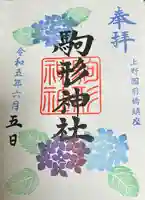 奉拝
上野國前橋鎮座
駒形神社
駒形神社
令和五年六月
五日